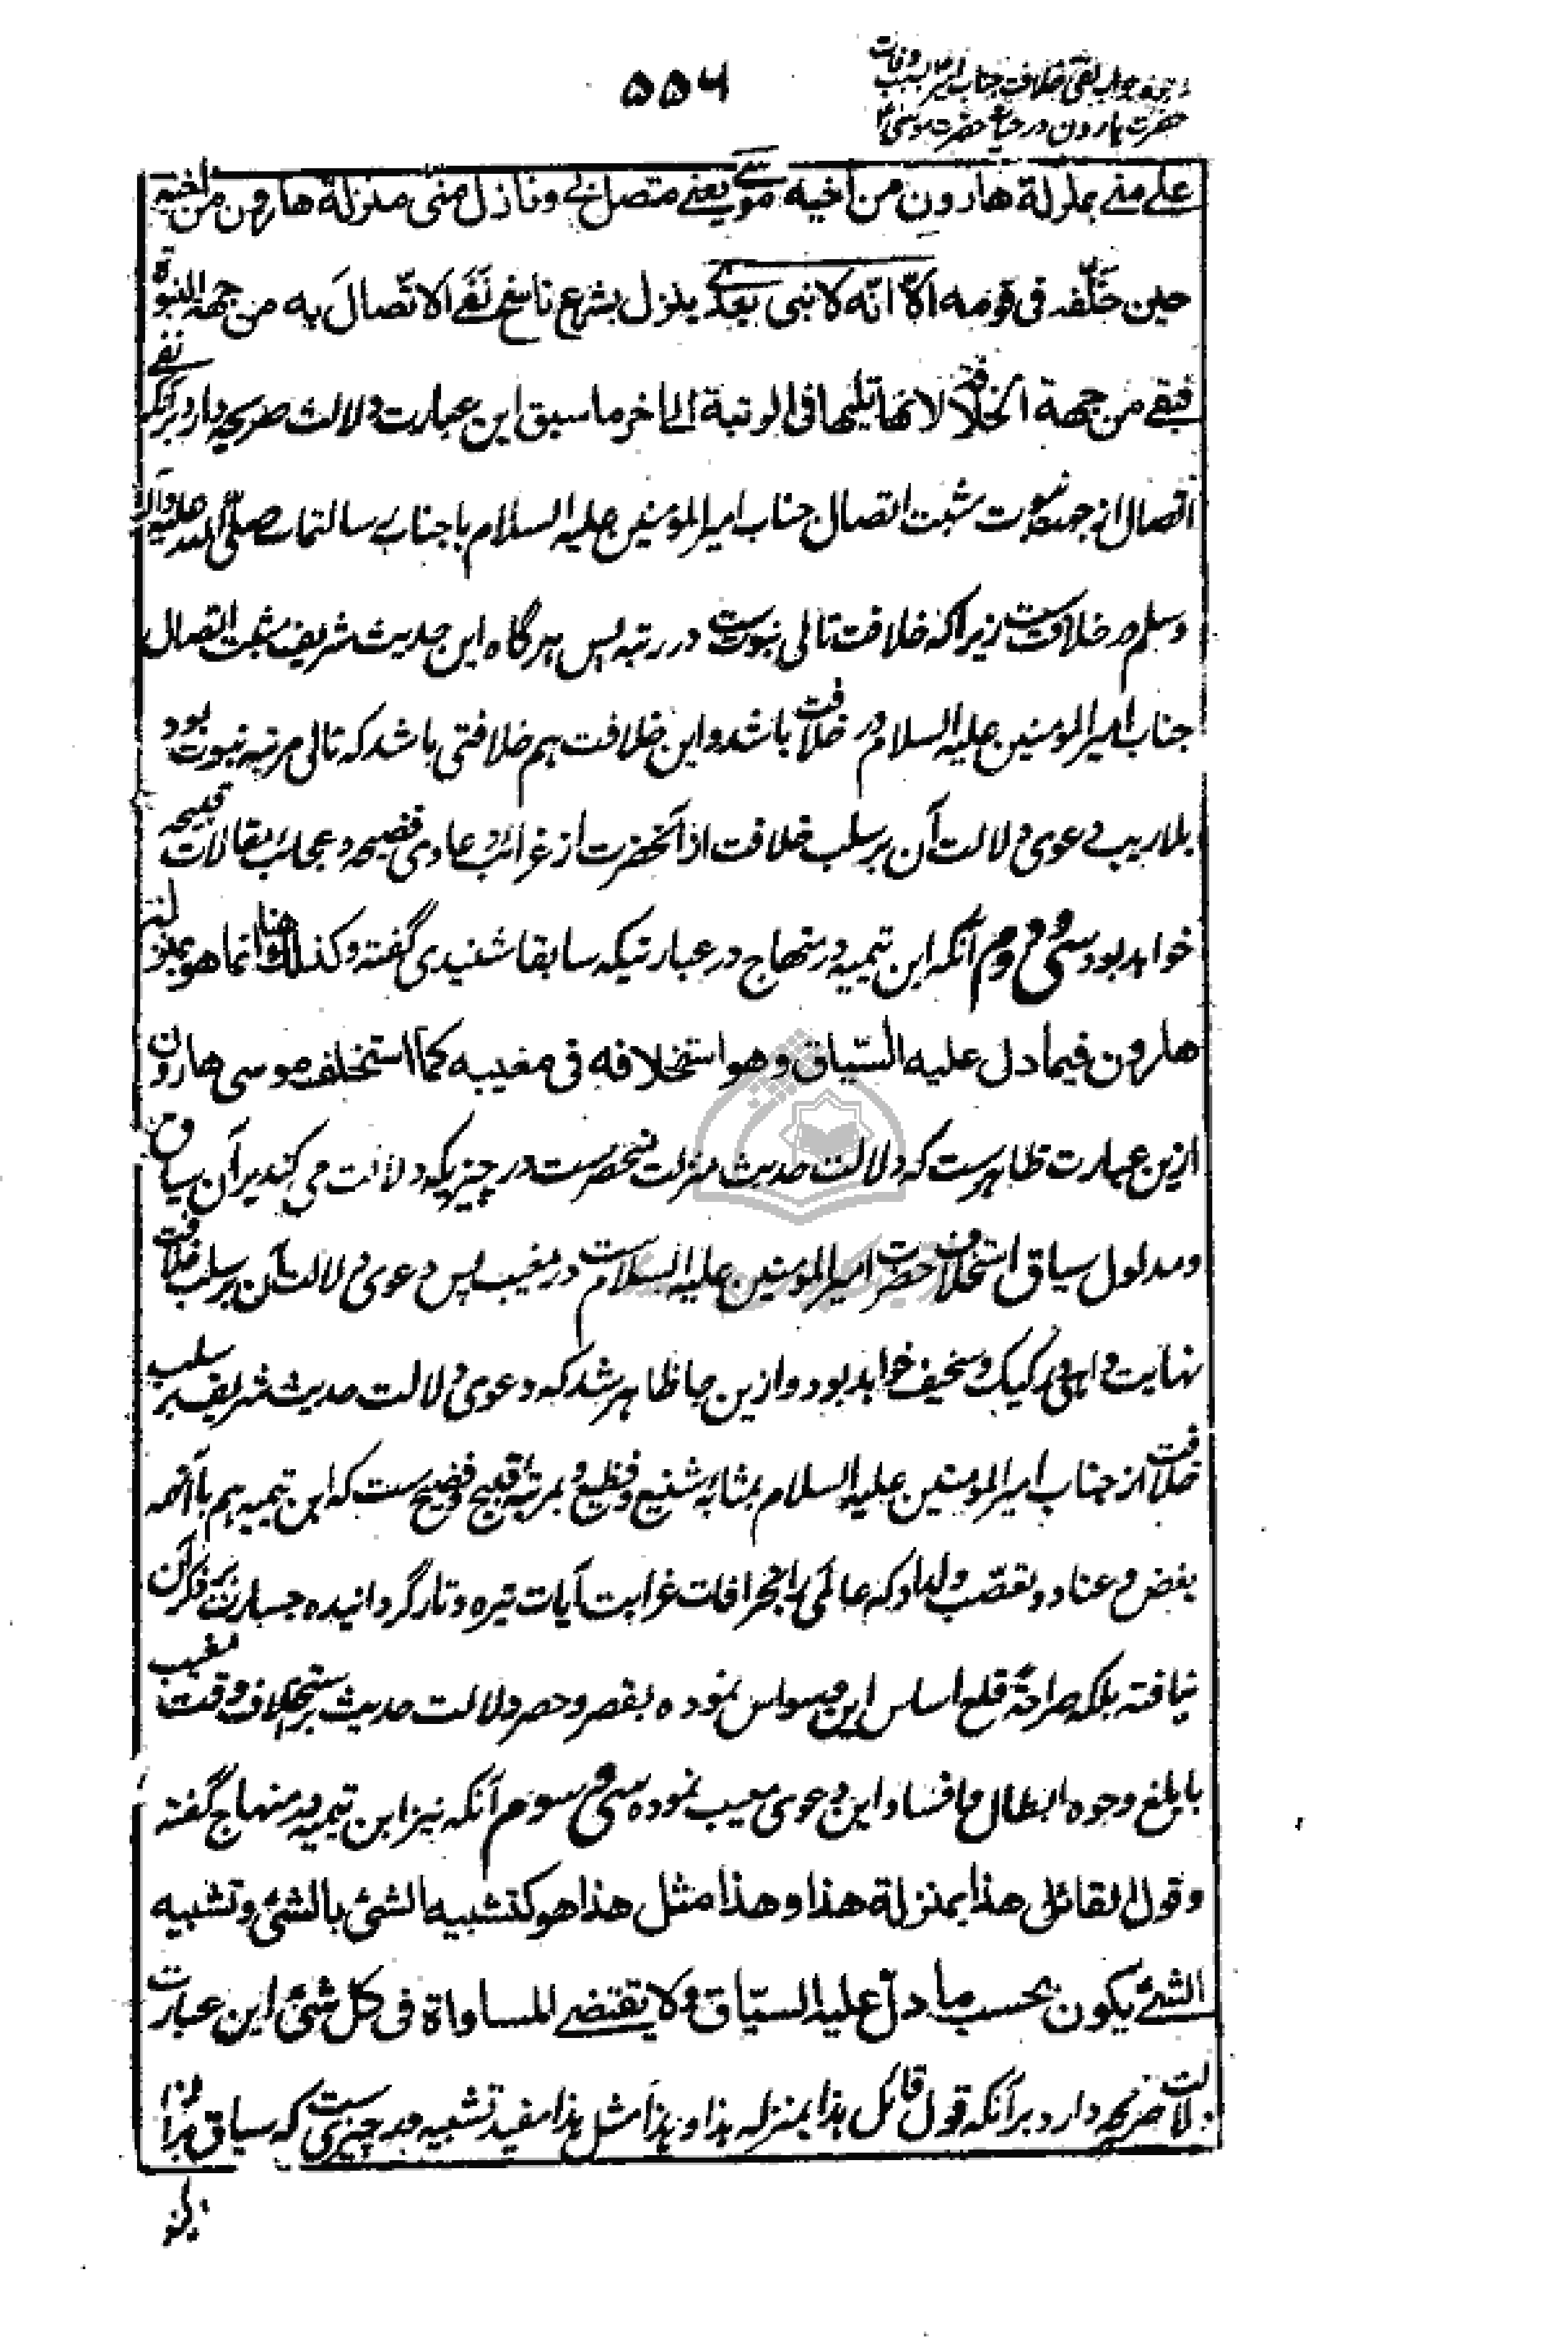 ۵۵۶
جواب نفی خلافت جناب امیر بسبب وفات
حضرت هارون در حیات حضرت موسی
علے منے بمنزلة هارون من اخیه موسے یعنے متصل بے و نازل منی منزلة هارون من اخیه
حین خلّفه فی قومه الّا انّه لا نبی بعدے ینزل بشرع ناسخ نَفَے الاتّصالَ به من جهة النبوة
فبقے من جهة الخلافة لانها تلیها فی الرتبة الی اخر ما سبق این عبارت دلالت صریحه دارد بر آنکه نفے
اتصال از جهت نبوت مثبت اتصال جناب امیر المؤمنین علیه السلام با جناب رسالتماب صلّی الله علیه و آله
و سلم در خلافت ست زیرا که خلافت تالی نبوت ست در رتبه پس هرگاه این حدیث شریف مثبت اتصال
جناب امیر المومنین علیه السلام در خلافت باشد و این خلافت هم خلافتی باشد که تالی مرتبه نبوت بود
بلا ریب دعوی دلالت آن بر سلب خلافت از آنحضرت از غرائب دعاوی فضیحه و عجائب مقالات قبیحه
خواهد بود سی و دوم آنکه ابن تیمیه در منهاج در عبارتیکه سابقا شنیدی گفته و کذلك هنا انما هو بمنزلة
هارون فیما دل علیه السّیاق و هو استخلافه فی مغیبه کما استخلف موسی هارون
ازین عبارت ظاهرست که دلالت حدیث منزلت منحصرست در چیزیکه دلالت می کند بر آن سیاق
و مدلول سیاق استخلاف حضرت امیر المومنین علیه السلام ست در مغیب پس دعوی دلالت آن بر سلب خلافت
نهایت واهی و رکیک و سخیف خواهد بود و ازین جا ظاهر شد که دعوی دلالت حدیث شریف بر سلب
خلافت از جناب امیر المومنین علیه السلام بمثابهٔ شنیع و فظیع و بمرتبهٔ قبیح و فضیح ست که ابن تیمیه هم با آنهمه
بغض و عناد و تعصّب و لداد که عالمی را بخرافات غرابت آیات تیره و تار گردانیده جسارت بر ذکر آن
نیافته بلکه صراحةً قلع اساس این وسواس نموده بقصر و حصر دلالت حدیث بر استخلاف وقت مغیب
بابلغ وجوه ابطال و افساد این دعوی معیب نموده سی و سوم آنکه نیز ابن تیمیه در منهاج گفته
و قول القائل هذا بمنزلة هذا و هذا مثل هذا هو کتشبیه الشئ بالشئ و تشبیه
الشئ بالشئ یکون بحسب ما دلّ علیه السیّاق و لا یقتضے المساواة فی کل شئ این عبارت
دلالت صریحه دارد بر آنکه قول قائل هذا بمنزله هذا و هذا مثل هذا مفید تشبیه در چیزی ست که سیاق بر آن